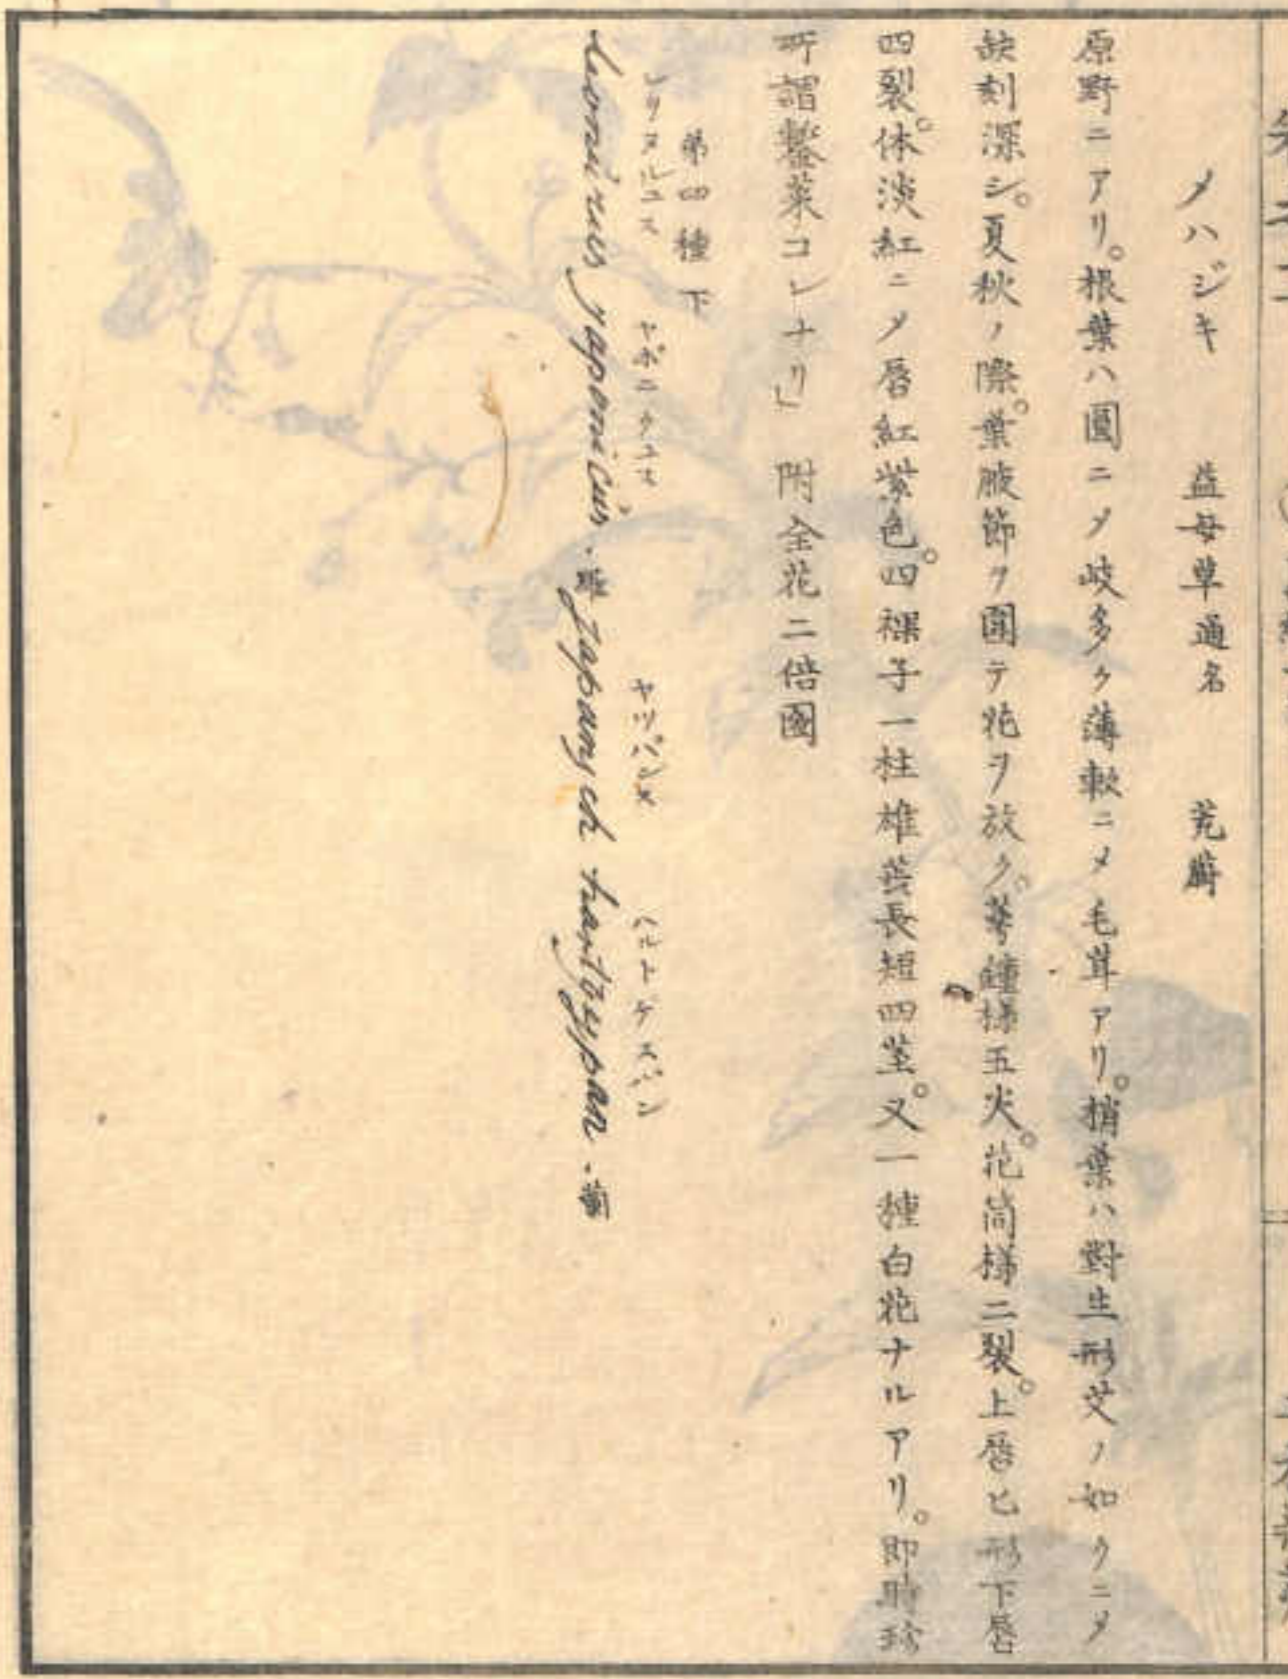 メハジキ 益母草通名 茺蔚
原野ニアリ。根葉ハ圓ニメ岐多ク薄軟ニメ毛茸アリ。梢葉ハ對生形艾ノ如クニメ
缺刻深シ。夏秋ノ際。葉腋節ヲ圍テ花ヲ放ク。萼鐘様五尖。花筒様二裂。上唇匕形下唇
四裂。体淡紅ニメ唇紅紫色。四裸子一柱雄蕊長短四莖。又一種白花ナルアリ。即時珍
所謂菨菜コレナリ」 附全花二倍圖
第四種 下
レヲヌルユス ヤポニクユス ヤッパンス ヘルトゲスパン
Leonurus japonicus. 羅 Japansch hartgespan. 蘭